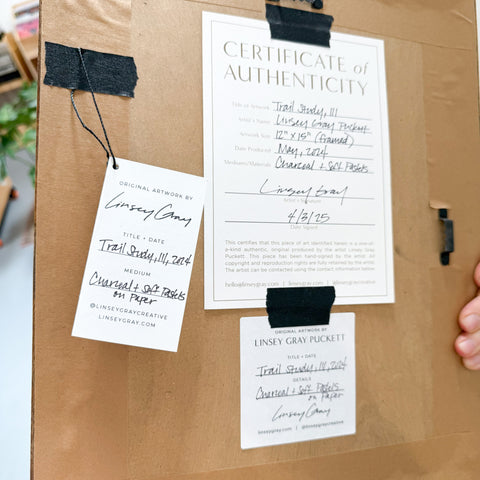 CERTIFICATE of
AUTHENTICITY
Title of Artwork Trail Study, III
Artist's Name Linsey Gray Puckett
Artwork Size 12" x 15" (framed)
Date Produced May, 2024
Mediums/Materials Charcoal + Soft Pastels
Linsey Gray
Artist's Signature
4/3/25
Date Signed
This certifies that this piece of art identified herein is a one-of-
a-kind authentic, original produced by the artist Linsey Gray
Puckett. This piece has been hand-signed by the artist. All
copyright and reproduction rights are fully retained by the artist.
The artist can be contacted using the contact information below.
hello@linseygray.com | linseygray.com | @linseygraycreative
ORIGINAL ARTWORK BY
Linsey Gray
TITLE + DATE
Trail Study, III, 2024
MEDIUM
Charcoal + Soft Pastels
on Paper
@LINSEYGRAYCREATIVE
LINSEYGRAY.COM
ORIGINAL ARTWORK BY
LINSEY GRAY PUCKETT
TITLE + DATE
Trail Study, III, 2024
DETAILS
Charcoal + Soft Pastels
on Paper
Linsey Gray
linseygray.com | @linseygraycreative